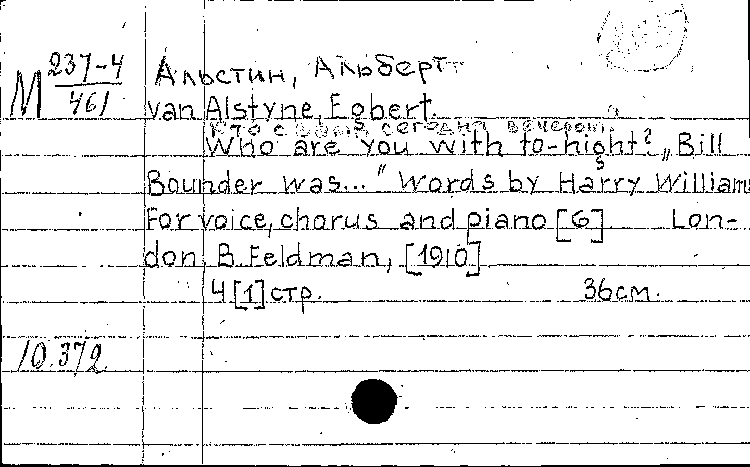 М 237-4
461
Альстин, Альберт
van Alstyne, Egbert.
Кто с вами сегодня вечером?
Who are you with to-night? „Bill
Bounder was...” Words by Harry William
For voice, chorus and piano [G] Lon-
don, B. Feldman, [1910]
4 [1] стр. 36см.
10.372